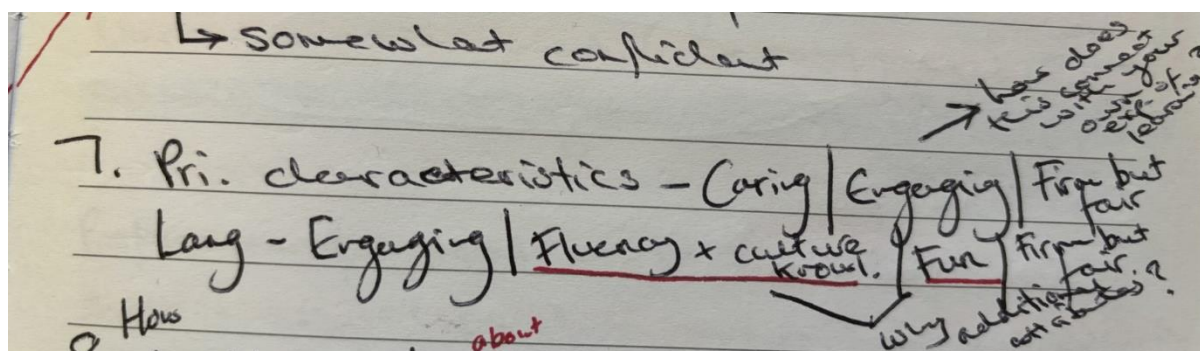 ↳ somewhat confident
→ how does
this connect
with your
own
exp. of
learning?
7. Pri. characteristics - Caring | Engaging | Firm but fair
Lang - Engaging | Fluency + culture knowl. | Fun | Firm but fair.
why additional attributes?
How
about